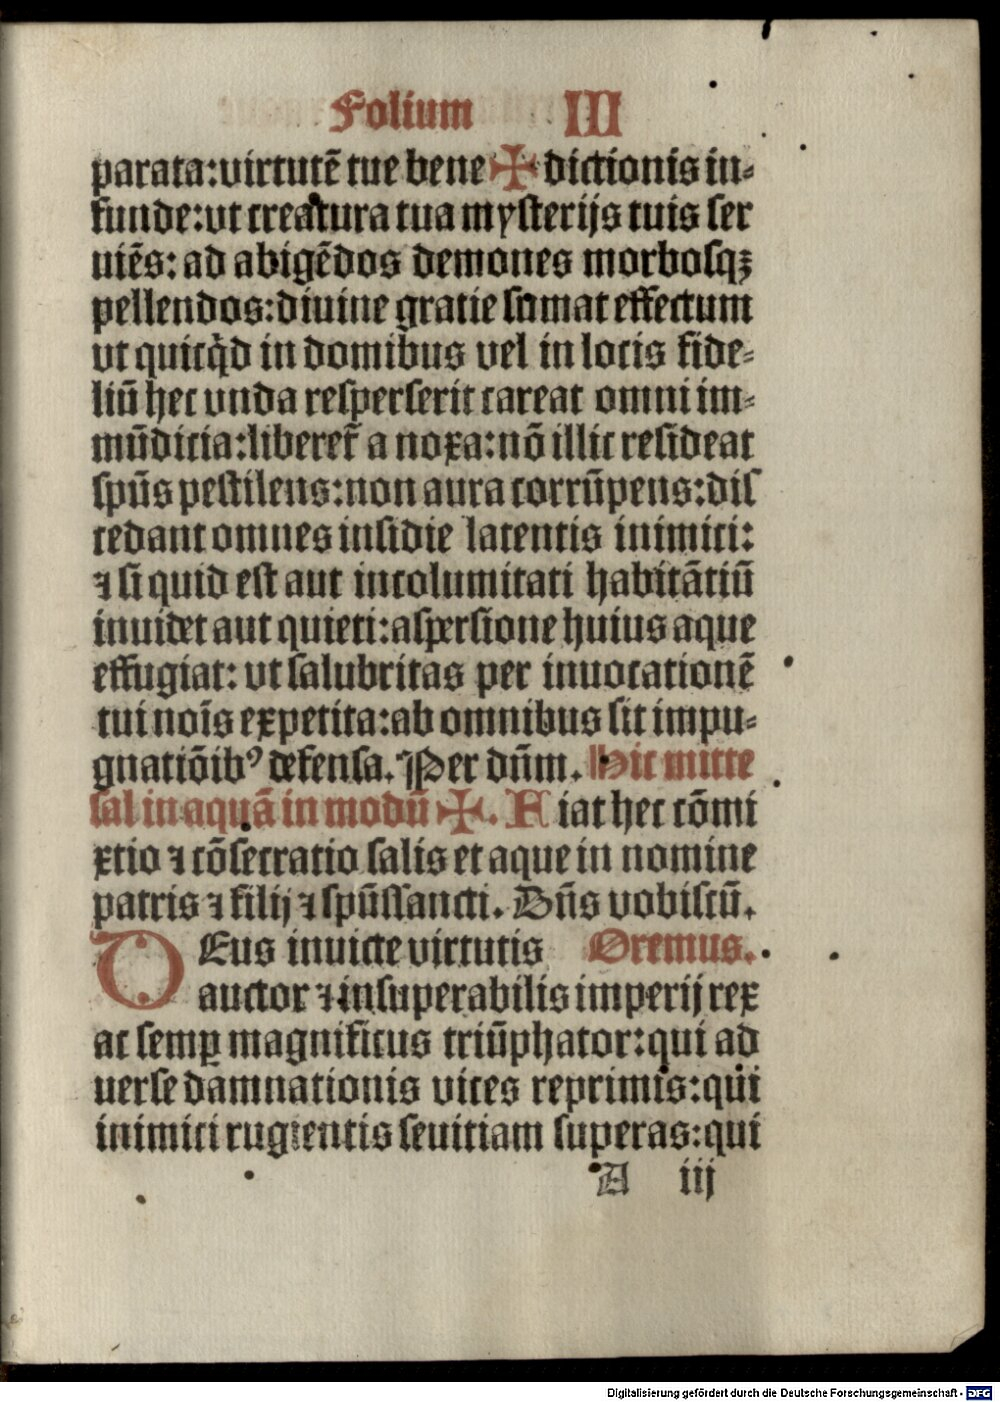 Folium III
parata:virtutē tue bene ✠ dictionis in-
funde:ut creatura tua mysterijs tuis ser
uiēs: ad abigēdos demones morbosqꝫ
pellendos:diuine gratie sumat effectum
vt quicq̇d in domibus vel in locis fide-
liū hec vnda resperserit careat omni im-
mūdicia:liberet̄ a noxa:nō illic resideat
spūs pestilens:non aura corrūpens:dis
cedant omnes insidie latentis inimici:
⁊ si quid est aut incolumitati habitātiū
inuidet aut quieti:aspersione huius aque
effugiat: vt salubritas per inuocationē
tui nōis expetita:ab omnibus sit impu-
gnatiōibꝰ defensa. Per dūm. Hic mitte
sal in aquā in modū ✠. Fiat hec cōmi
xtio ⁊ cōsecratio salis et aque in nomine
patris ⁊ filij ⁊ spūssancti. Dn̄s vobiscū.
DEus inuicte virtutis Oremus.
auctor ⁊ insuperabilis imperij rex
ac semꝑ magnificus triūphator:qui ad
uerse damnationis vires reprimis:qui
inimici rugientis seuitiam superas:qui
A iij
Digitalisierung gefördert durch die Deutsche Forschungsgemeinschaft - DFG